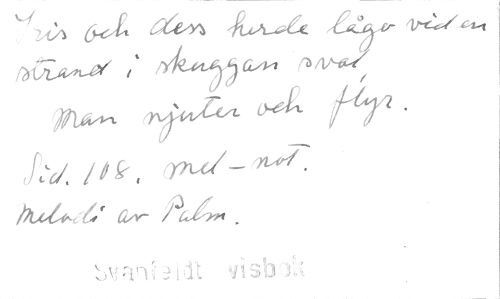 Iris och dess herde lågo vid en
strand i skuggan sval
Man njuter och flyr.
Sid. 108. mel-not.
Melodi av Palm.
Svanfeldt visbok